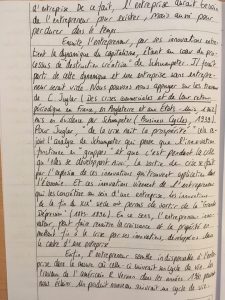 d'entreprise. De ce fait, l'entreprise aurait besoin
de l'entrepreneur pour exister, mais aussi pour
perdurer dans le temps.
Ensuite, l'entrepreneur, par ses innovations
la dynamique du capitalisme, étant au cœur du
cessus de destruction créatrice" de Schumpeter. Il fait
part de cette dynamique et une entreprise sans entrepre-
neur serait vide. Nous pouvons nous appuyer sur les travaux
de C. Juglar (Des crises commerciales et de leur retour
périodique en France, en Angleterre et aux États-Unis,
mis en évidence par Schumpeter (Business Cycles, 1939).
Pour Juglar, "de la crise naît la prospérité" cela
l'analyse de Schumpeter qui pense que l'innovation
fonctionne "en grappes" et que c'est pendant la crise
qu'elles se développent aussi. La sortie de crise se fait
par l'apparition de ces innovations qui trouvent application dans
l'économie. Et ces innovations viennent de l'entrepreneur
qui les concrétise au sein d'une entreprise. Les innovations
de la fin du XIXe siècle ont permis de sortir de la "Grande
Dépression" (1873-1896). En ce sens, l'entrepreneur inno-
vateur, peut faire renaître la croissance et la prospérité en
mettant fin à la crise par ses innovations, développées dans
le cadre d'une entreprise.
Enfin, l'entrepreneur semble indispensable à l'entre-
prise dans la mesure où elle le suivrait au cycle de vie
travaux de l'américain R. Vernon dans les années
nous éclairer. Un produit nouveau, suivrait un cycle de vie